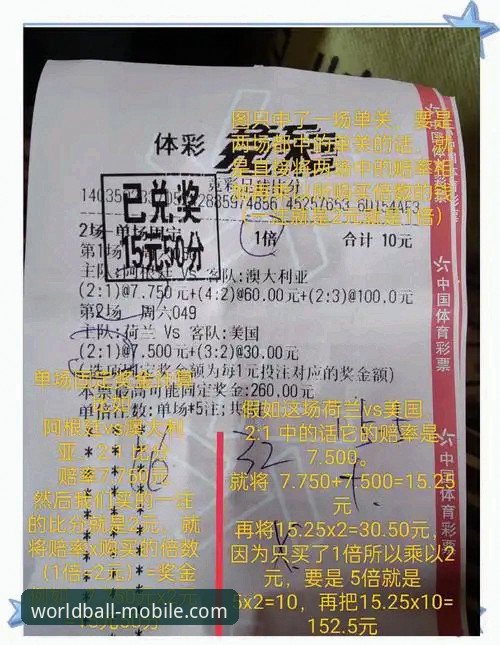 体彩 竞彩
图只中了一场单关，要是
两场都中的单关的话，就
是直接将两场中的赔率相
（一注就是2元就是1倍）
已兑奖
15元50分
2场-单场固定
1倍
合计 10元
第1场
主队:阿根廷 VS 客队:澳大利亚
(2:1)@7.750元+(4:2)@60.00元+(2:3)@100.0元
第2场 周六049
主队:荷兰 Vs 客队:美国
(2:1)@7.500元+(3:2)@30.00元
(选项固定奖金额为每1元投注对应的奖金额)
本票最高可能固定奖金:260.00元
单倍注数:单场*5注;共
单场固定奖金计算
阿根廷vs澳大利
亚，2:1 比分
赔率7.750元
然后我们买的一注
的比分就是2元，就
将赔率x购买的倍数
（1倍=2元）=奖金
假如这场荷兰vs美国
2:1 中的话它的赔率是
7.500。
就将 7.750+7.500=15.25
元
再将15.25x2=30.50元，
因为只买了1倍所以乘以2
元，要是 5倍就是
5x2=10，再把15.25x10=
152.5元
中国体育彩票
中国体育彩票
中国体育彩票
worldball-mobile.com